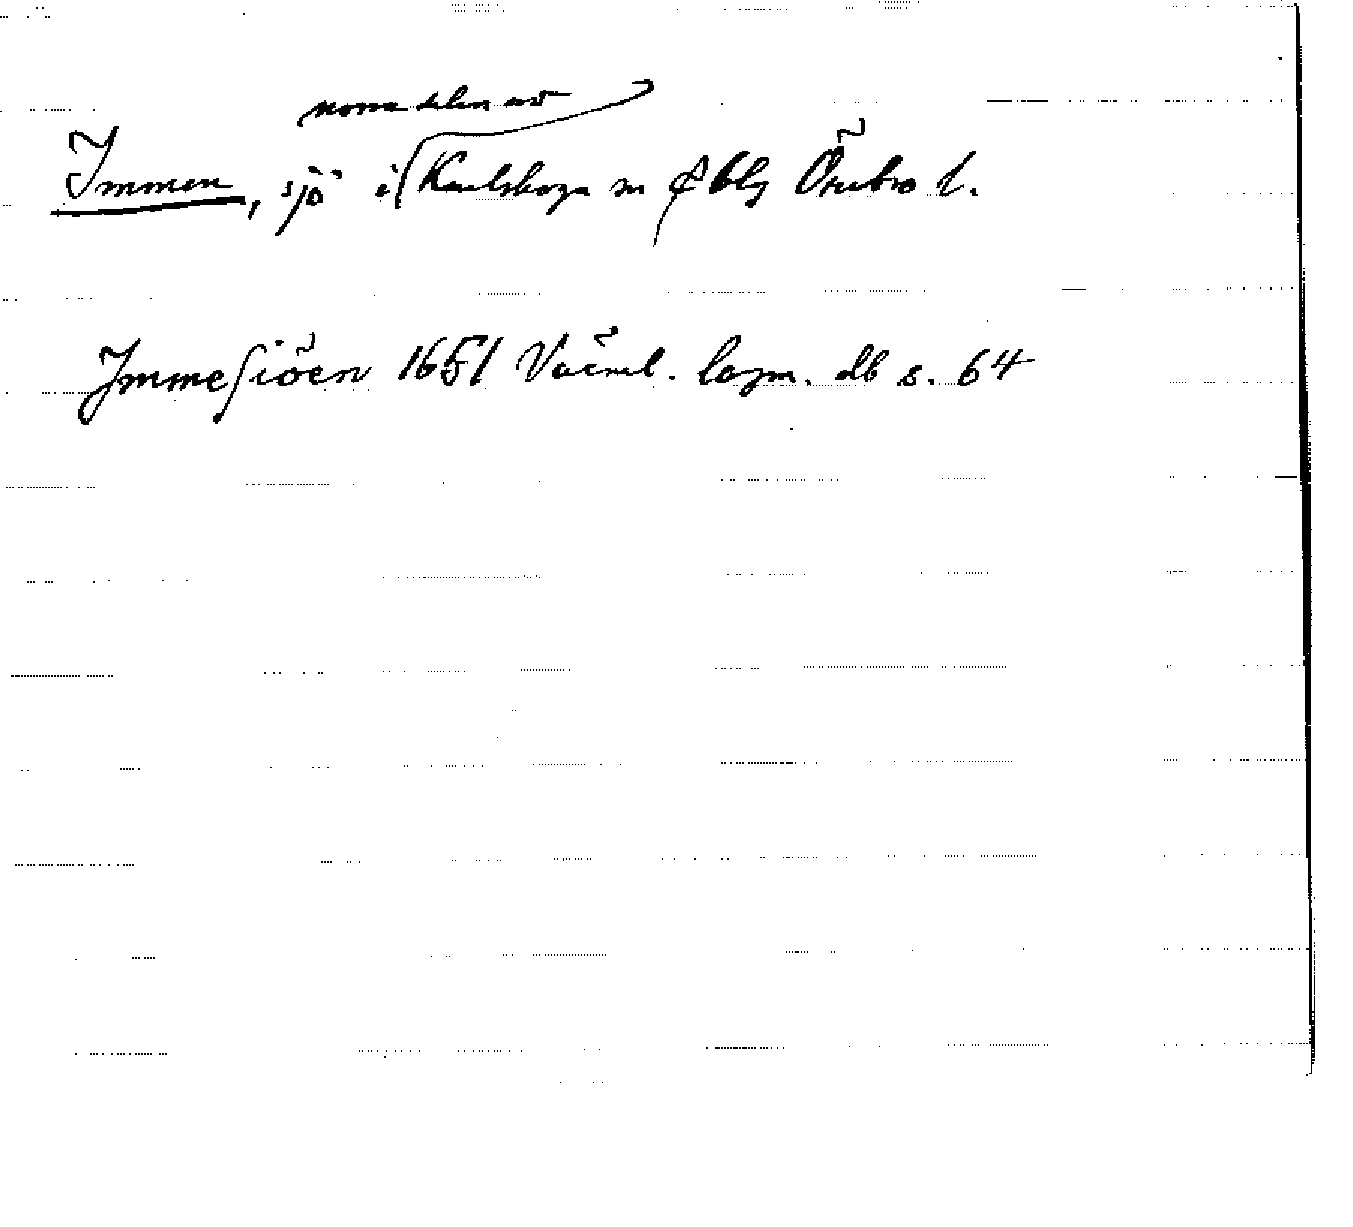 norra delen av
Immen, sjö i Karlskoga sn & blg Örebro l.
Immesiöen 1651 Värml. lagm. db s. 64